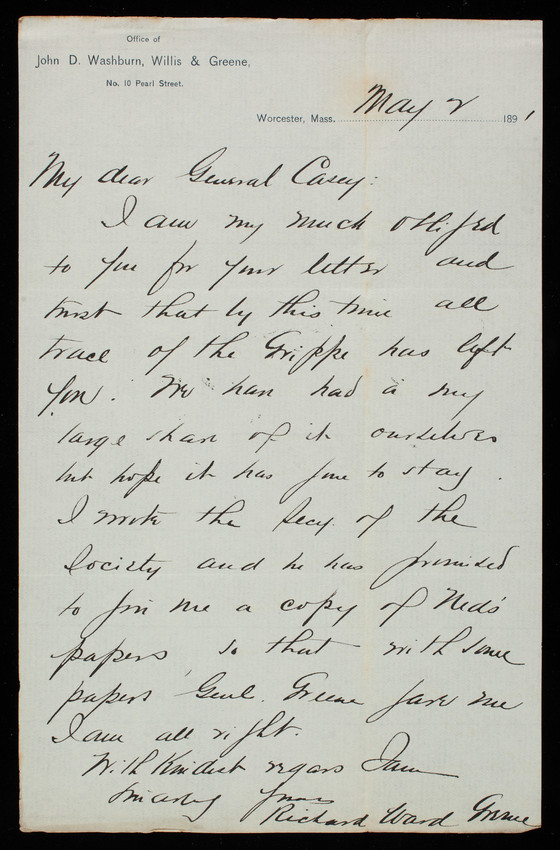 Office of
John D. Washburn, Willis & Greene,
No. 10 Pearl Street.
Worcester, Mass. May 2 1891
My dear General Casey:
I am very much obliged
to you for your letter and
trust that by this time all
trace of the Grippe has left
you. We have had a very
large share of it ourselves
but hope it has gone to stay.
I wrote the Secy. of the
Society and he has promised
to give me a copy of Ned's
papers so that with some
papers Genl. Greene gave me
I am all right.
With kindest regards I am
Sincerely yours
Richard Ward Greene